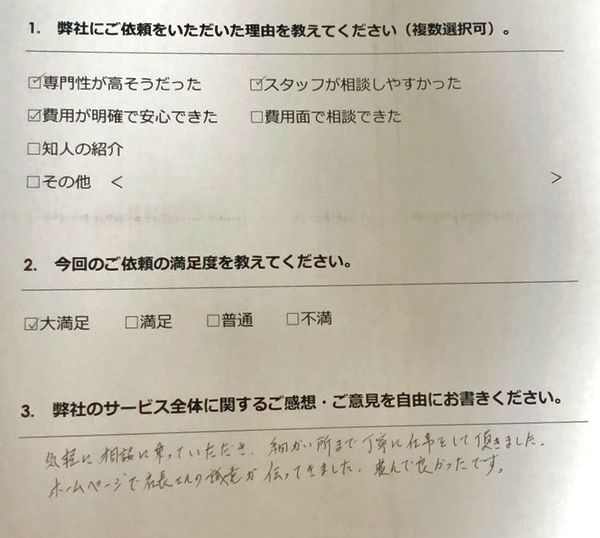 1. 弊社にご依頼をいただいた理由を教えてください（複数選択可）。
☑専門性が高そうだった ☑スタッフが相談しやすかった
☑費用が明確で安心できた □費用面で相談できた
□知人の紹介
□その他 ＜ ＞
2. 今回のご依頼の満足度を教えてください。
☑大満足 □満足 □普通 □不満
3. 弊社のサービス全体に関するご感想・ご意見を自由にお書きください。
気軽に相談に乗っていただき、細かい所まで丁寧に仕事をして頂きました。
ホームページで社長さんの誠意が伝ってきました。選んで良かったです。